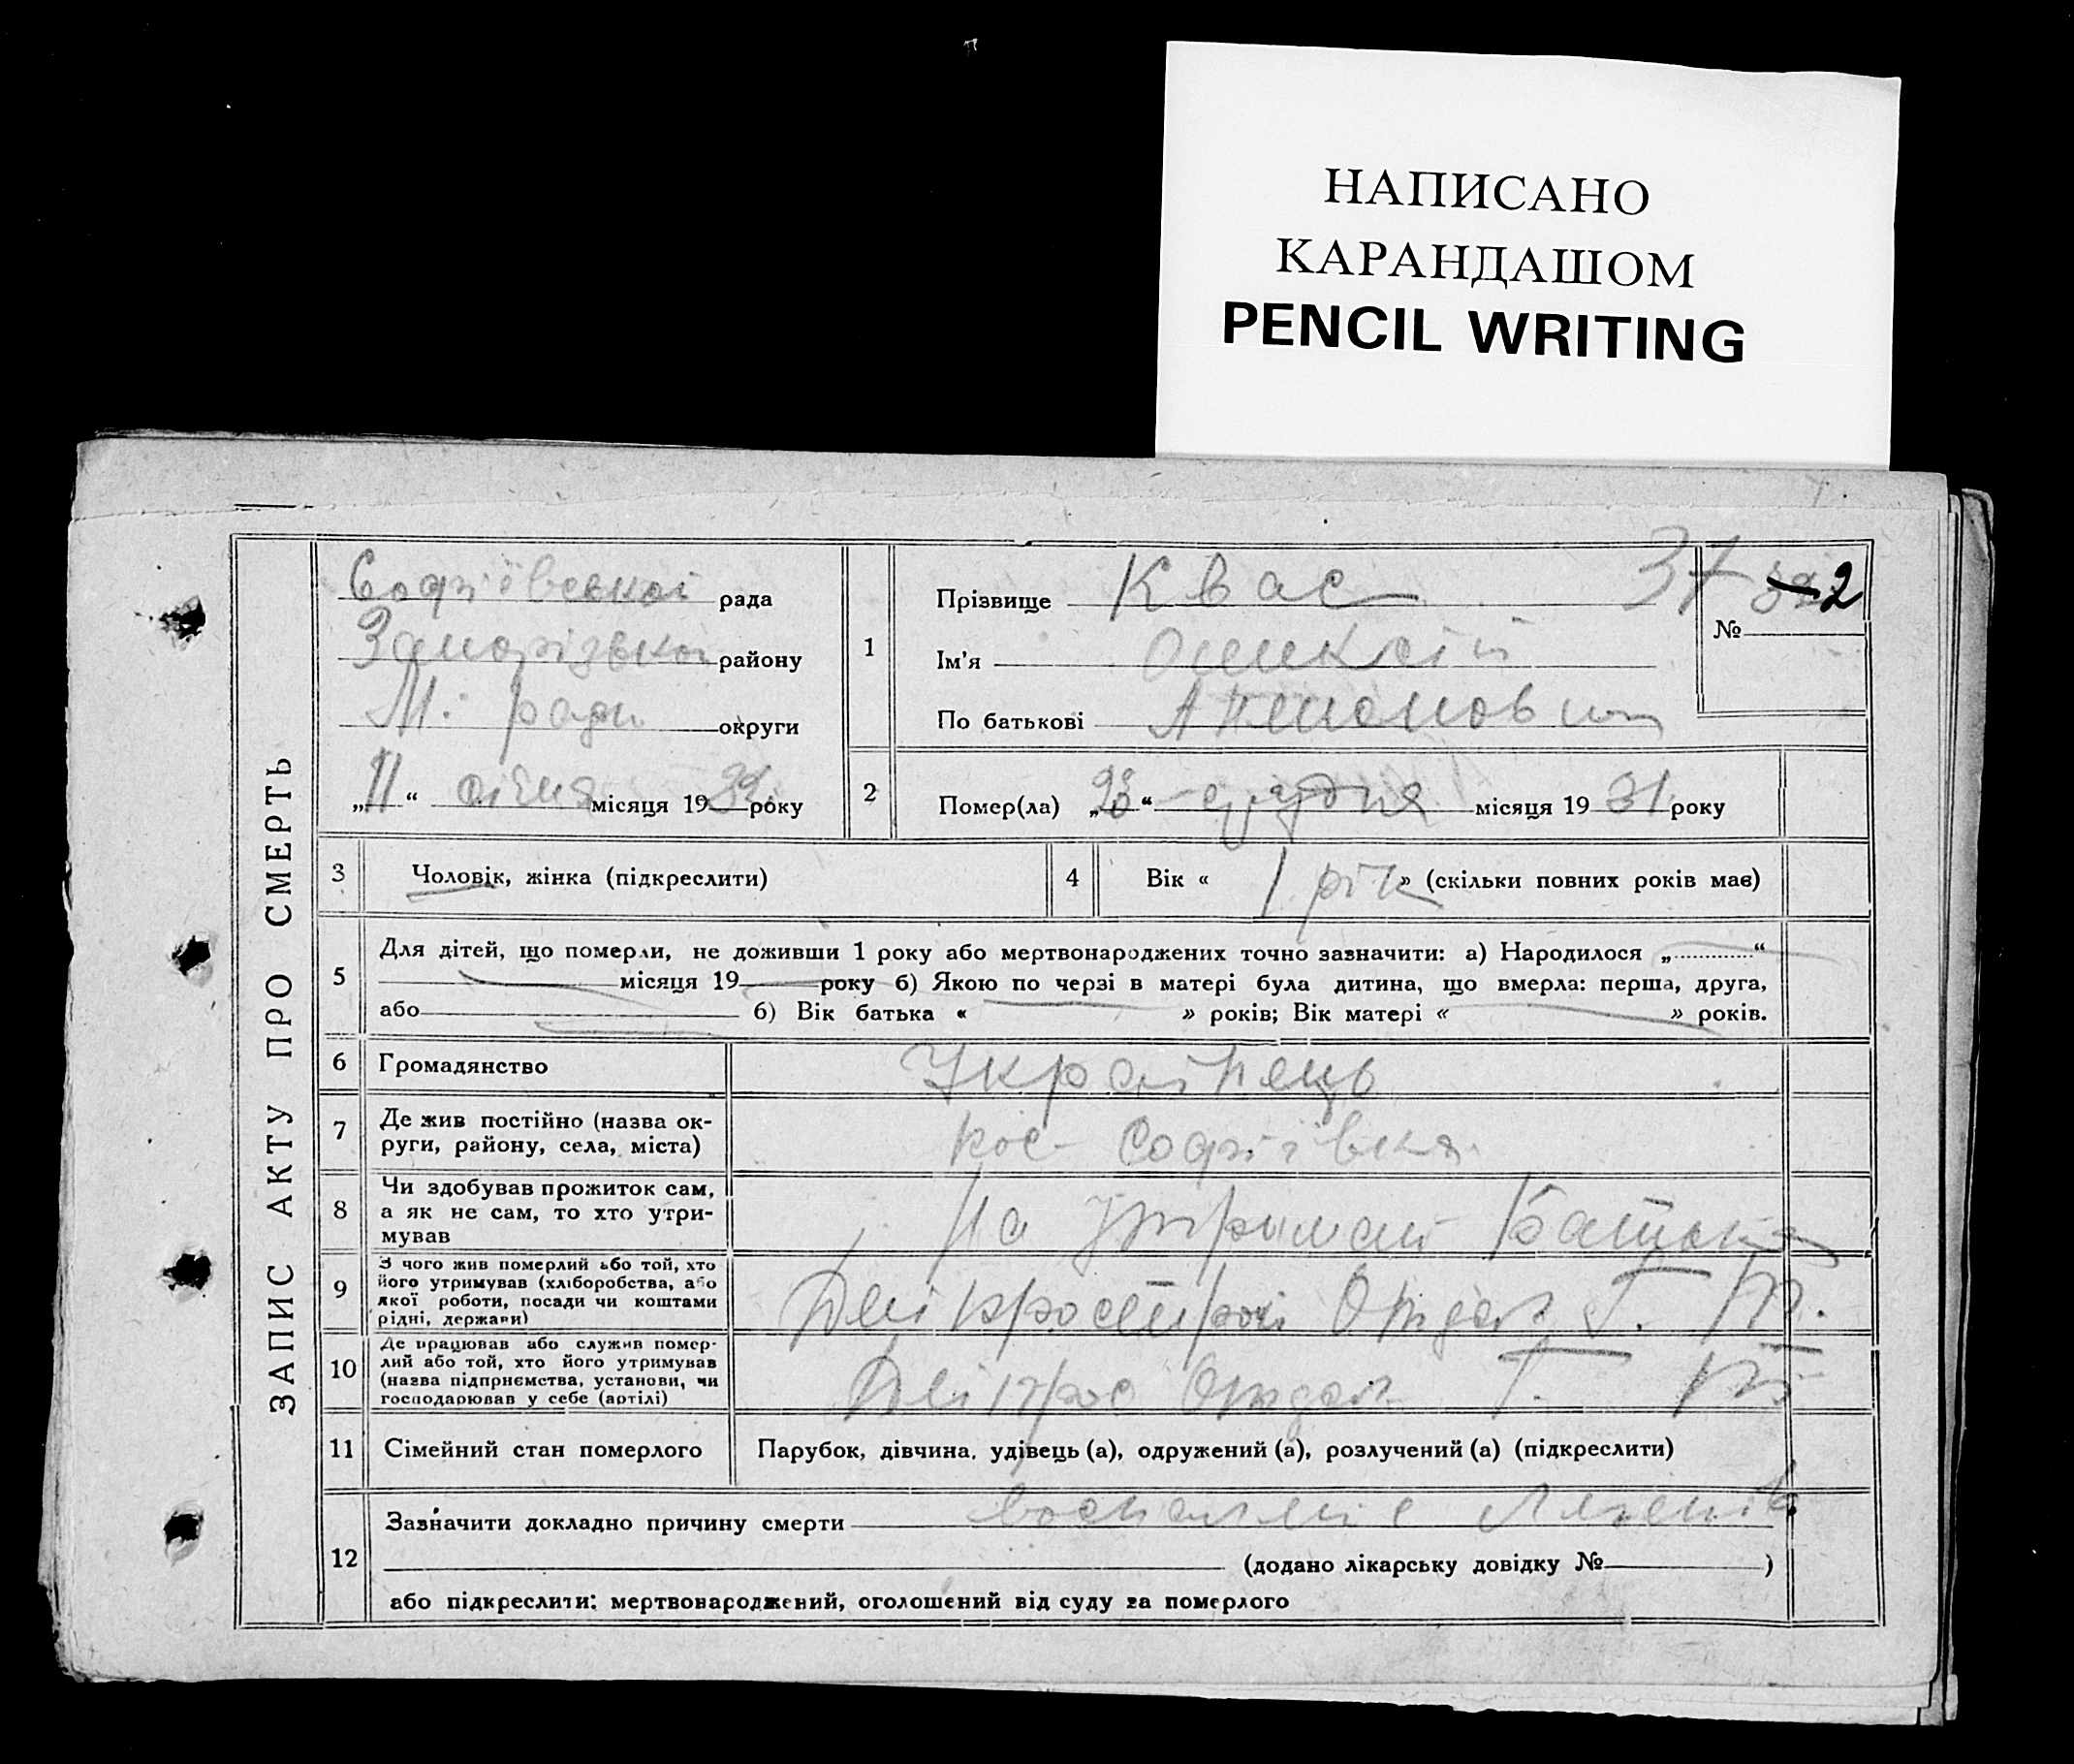 НАПИСАНО
КАРАНДАШОМ
PENCIL WRITING
ЗАПИС АКТУ ПРО СМЕРТЬ
Софіївської рада
Запорізької району
М. ради округи
„11“ січня місяця 1932 року
1
Прізвище Квас
Ім'я
По батькові
37
№ 2
2
Помер(ла) „23“ грудня місяця 1931 року
3 Чоловік, жінка (підкреслити)
4 Вік « 1 рік » (скільки повних років має)
5
Для дітей, що померли, не доживши 1 року або мертвонароджених точно зазначити: а) Народилося „ “
місяця 19 року б) Якою по черзі в матері була дитина, що вмерла: перша, друга,
або б) Вік батька « » років; Вік матері « » років.
6 Громадянство Українець
7 Де жив постійно (назва ок-
руги, району, села, міста)
пос. Софіївка
8 Чи здобував прожиток сам,
а як не сам, то хто утри-
мував
На утриман Батька
9 З чого жив померлий або той, хто
його утримував (хліборобства, або
якої роботи, посади чи коштами
рідні, держави)
10 Де працював або служив помер-
лий або той, хто його утримував
(назва підприємства, установи, чи
господарював у себе (артілі)
11 Сімейний стан померлого Парубок, дівчина, удівець (а), одружений (а), розлучений (а) (підкреслити)
12
Зазначити докладно причину смерти
(додано лікарську довідку № )
або підкреслити: мертвонароджений, оголошений від суду за померлого